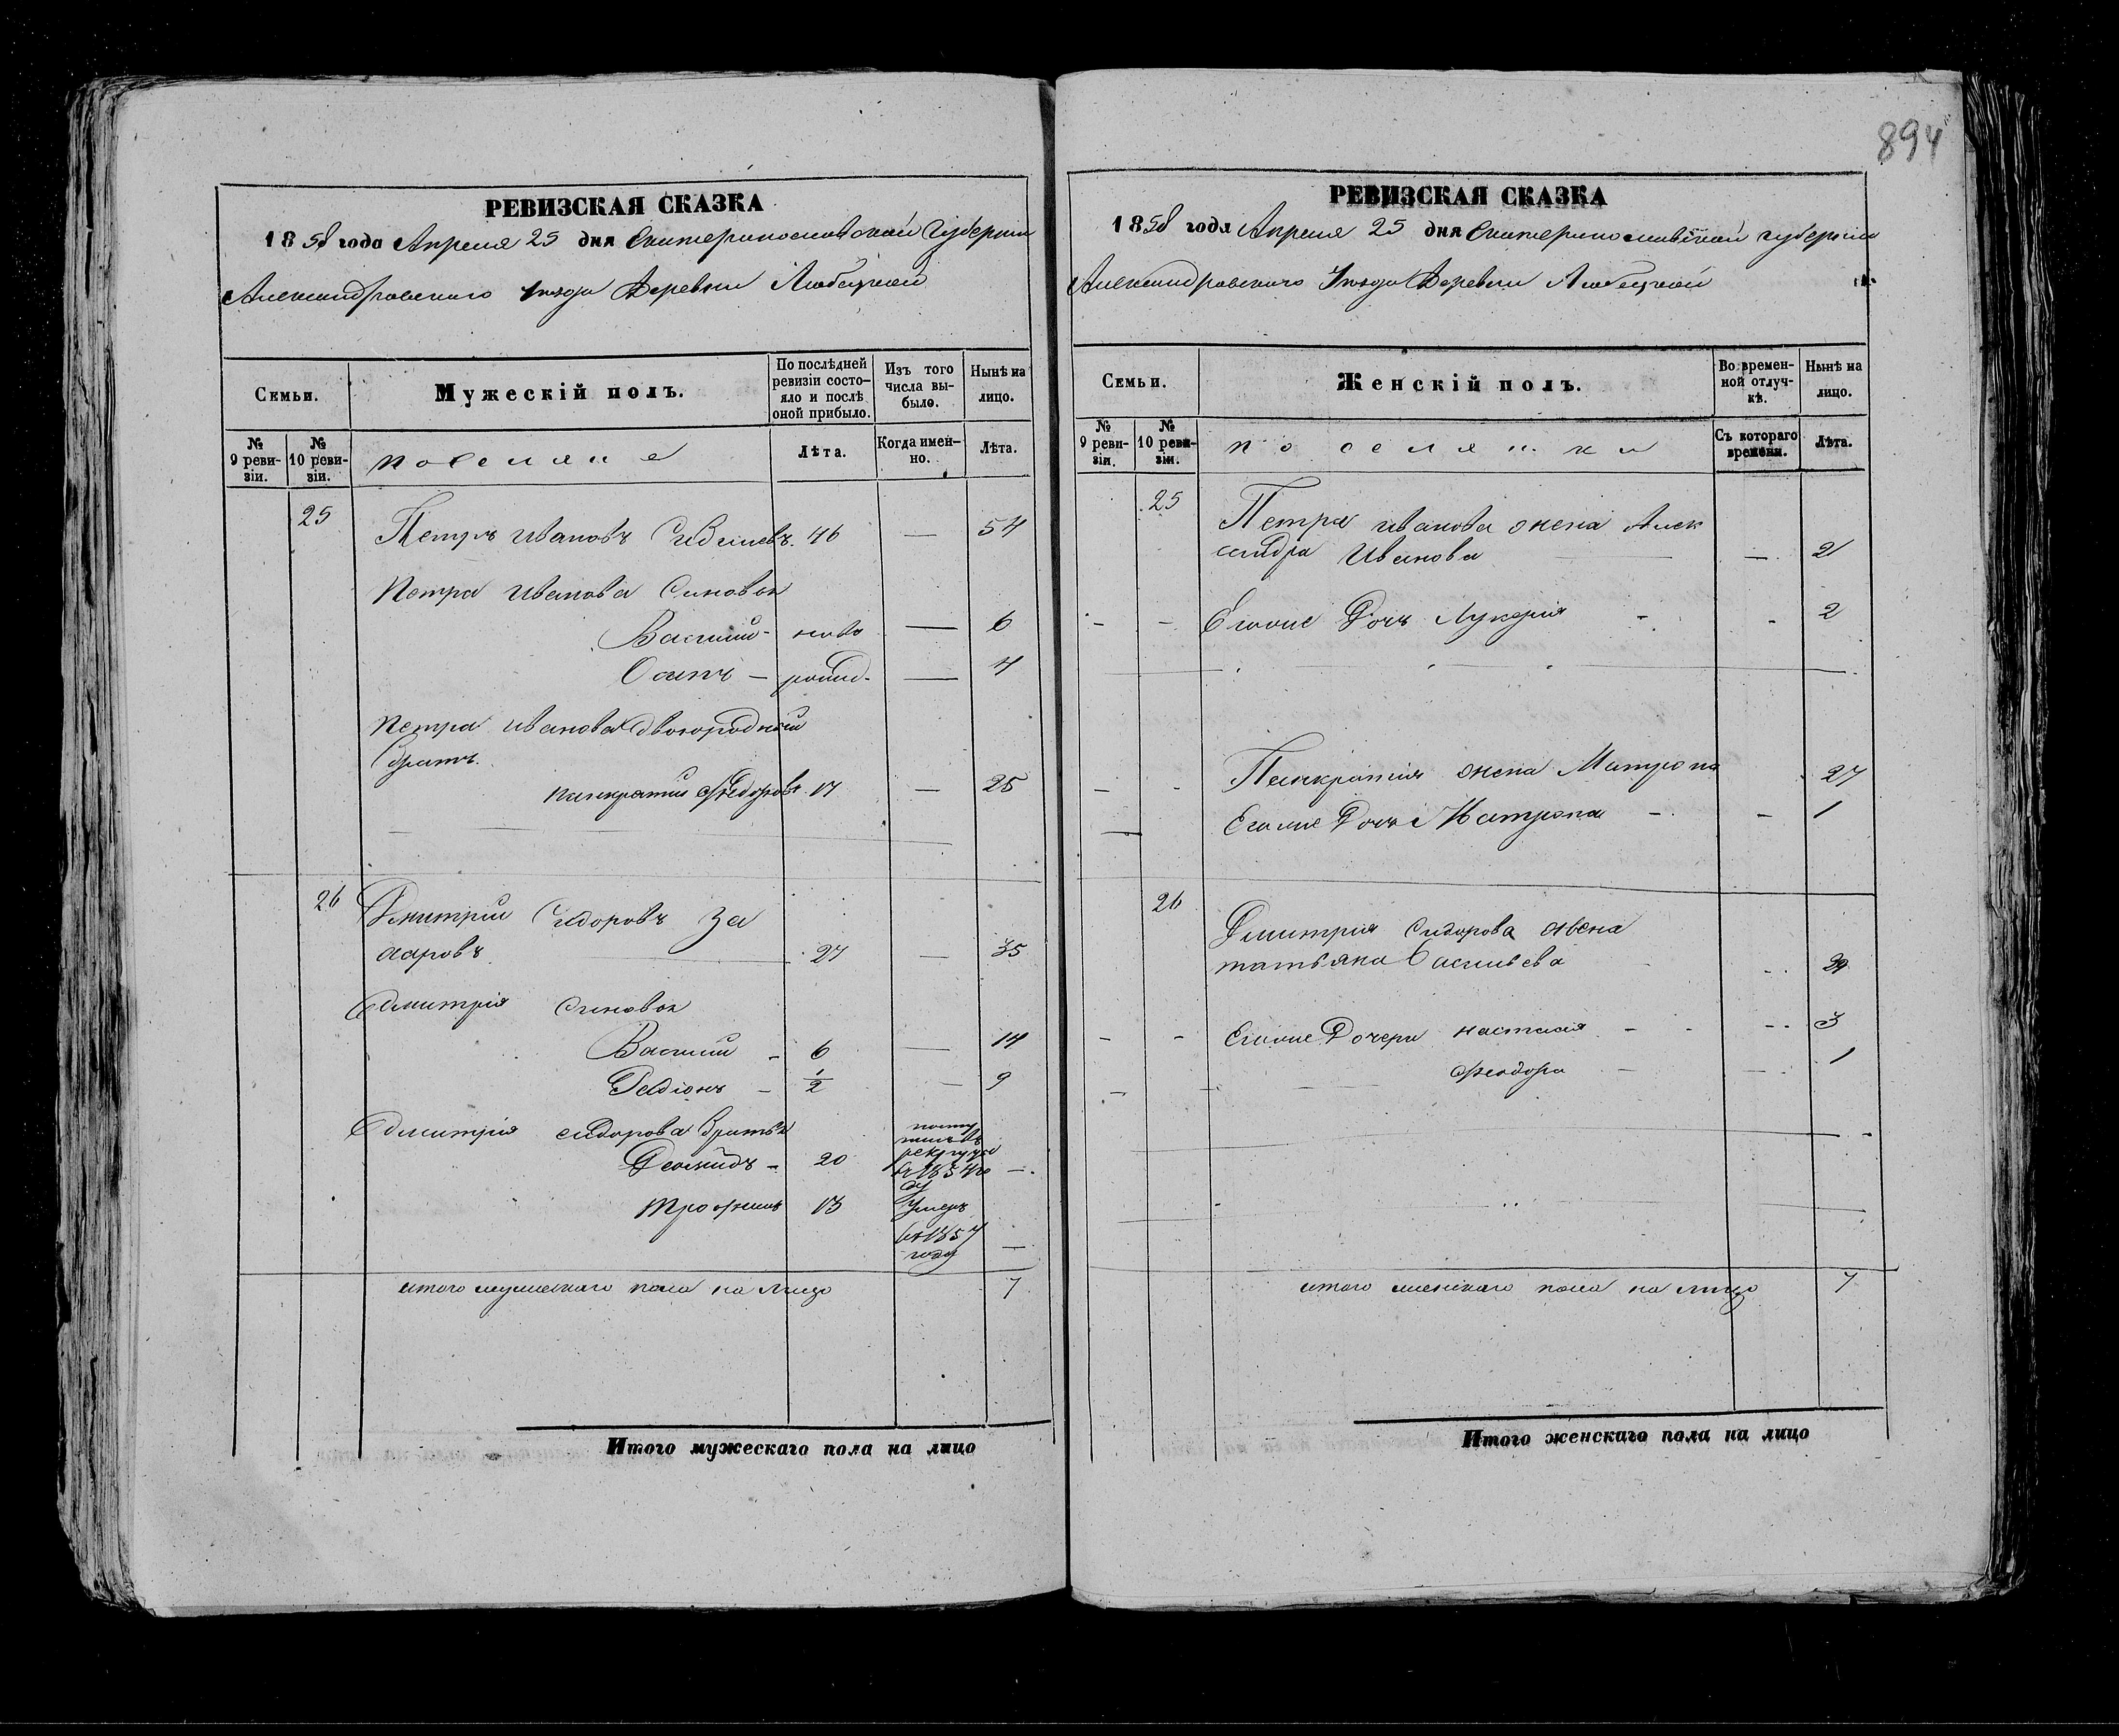 РЕВИЗСКАЯ СКАЗКА
1858 года Апреля 25 дня Екатеринославской Губернии
Александровскаго Уезда Деревни Любицкой
Семьи.
Мужескій полъ.
По послѣдней ревизіи состо-
яло и послѣ
оной прибыло.
Изъ того
числа вы-
было.
Нынѣ на
лицо.
№
9 реви-
зіи.
№
10 реви-
зіи.
поселяне
Лѣта.
Когда имен-
но.
Лѣта.
25
Петръ Ивановъ 46 — 54
Петра Иванова Сыновья
Василий - ново — 6
Осипъ — рожд. — 4
Петра Иванова двоюродный
братъ.
Панкратий Федоровъ 17 — 25
26 Дмитрий Сидоровъ За
харовъ 27 — 35
Дмитрія Сыновья
Василий - 6 — 14
Радіонъ - 1/2 — 9
Дмитрія Сидорова Братья
20
рекруты
в 1854 го
ду —
Трофимъ 13 Умеръ
в 1857
году —
итого мужескаго пола на лицо 7
Итого мужескаго пола на лицо
894
РЕВИЗСКАЯ СКАЗКА
1858 года Апреля 25 дня Екатеринославской губернии
Александровскаго Уезда Деревни Любицкой
Семьи.
Женскій полъ.
Во времен-
ной отлуч-
кѣ.
Нынѣ на
лицо.
№
9 реви-
зіи.
№
10 реви-
зіи.
поселянки
Съ котораго
времени.
Лѣта.
25
Петра Иванова жена Алек
сандра Иванова — 21
Егоже Дочь Лукерия - - 2
Панкратия жена Матрона 27
Егоже Дочь Матрона - - 1
26
Дмитрия Сидорова жена
татьяна Васильева
Егоже Дочери настасия - 3
Феодора - 1
итого женскаго пола на лицо 7
Итого женскаго пола на лицо